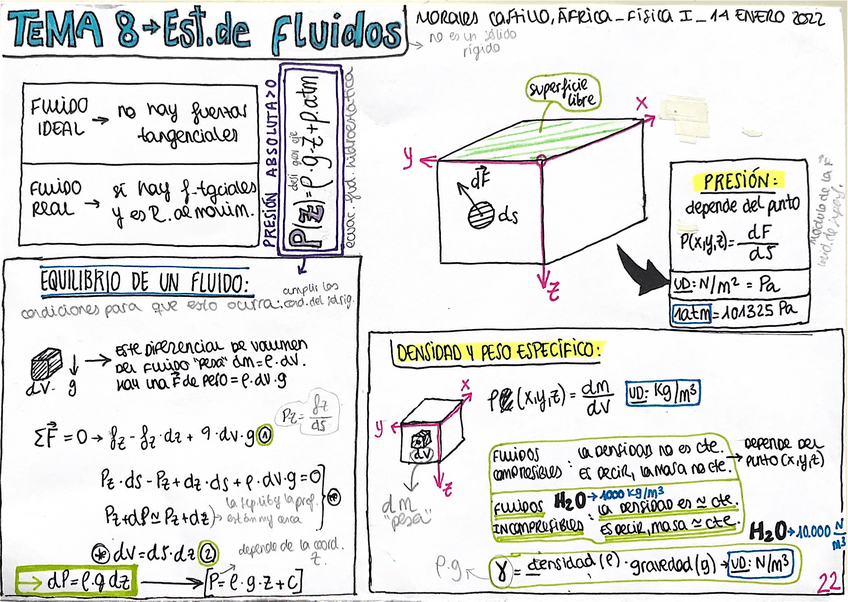 TEMA 8 → Est. de fluidos
MORALES CASTILLO, ÁFRICA _ FÍSICA I _ 14 ENERO 2022
no es un sólido
rígido
FLUIDO
IDEAL → no hay fuerzas
tangenciales
FLUIDO
REAL → sí hay f. tgciales
y es R. al movim.
PRESIÓN ABSOLUTA > 0
P(z) = ρ·g·z + p.atm
ecuac. fnd. hidroestática
superficie
libre
X
y
dF
ds
z
PRESIÓN:
depende del punto
P(x,y,z) = dF
dS
UD: N/m² = Pa
1atm = 101325 Pa
módulo de la F
EQUILIBRIO DE UN FLUIDO:
condiciones para que esto ocurra:
cumplir las
cond. del sld. rig.
dV g → este diferencial de volumen
del fluido "pesa" dm = ρ·dV.
hay una F de peso = ρ·dV·g
Pz = fz
ds
ΣF = 0 → fz - fz·dz + ρ·dV·g ①
Pz·ds - Pz+dz·ds + ρ·dV·g = 0
Pz+dP ≃ Pz+dz
están muy cerca
dV = ds·dz ②
depende de la coord.
z.
→ dP = ρ·g dz → P = ρ·g·z + C
DENSIDAD Y PESO ESPECÍFICO:
X
y
dV
z
dm
"pesa"
ρ (x,y,z) = dm
dV
UD: Kg/m³
FLUIDOS
COMPRESIBLES : la densidad no es cte.
es decir, la masa no cte.
→ depende del
punto (x,y,z)
H₂O → 1000 kg/m³
FLUIDOS
INCOMPRESIBLES : la densidad es ≃ cte.
es decir, masa ≃ cte.
H₂O → 10.000 N
m³
ρ·g
γ = densidad (ρ) · gravedad (g) → UD: N/m³
22